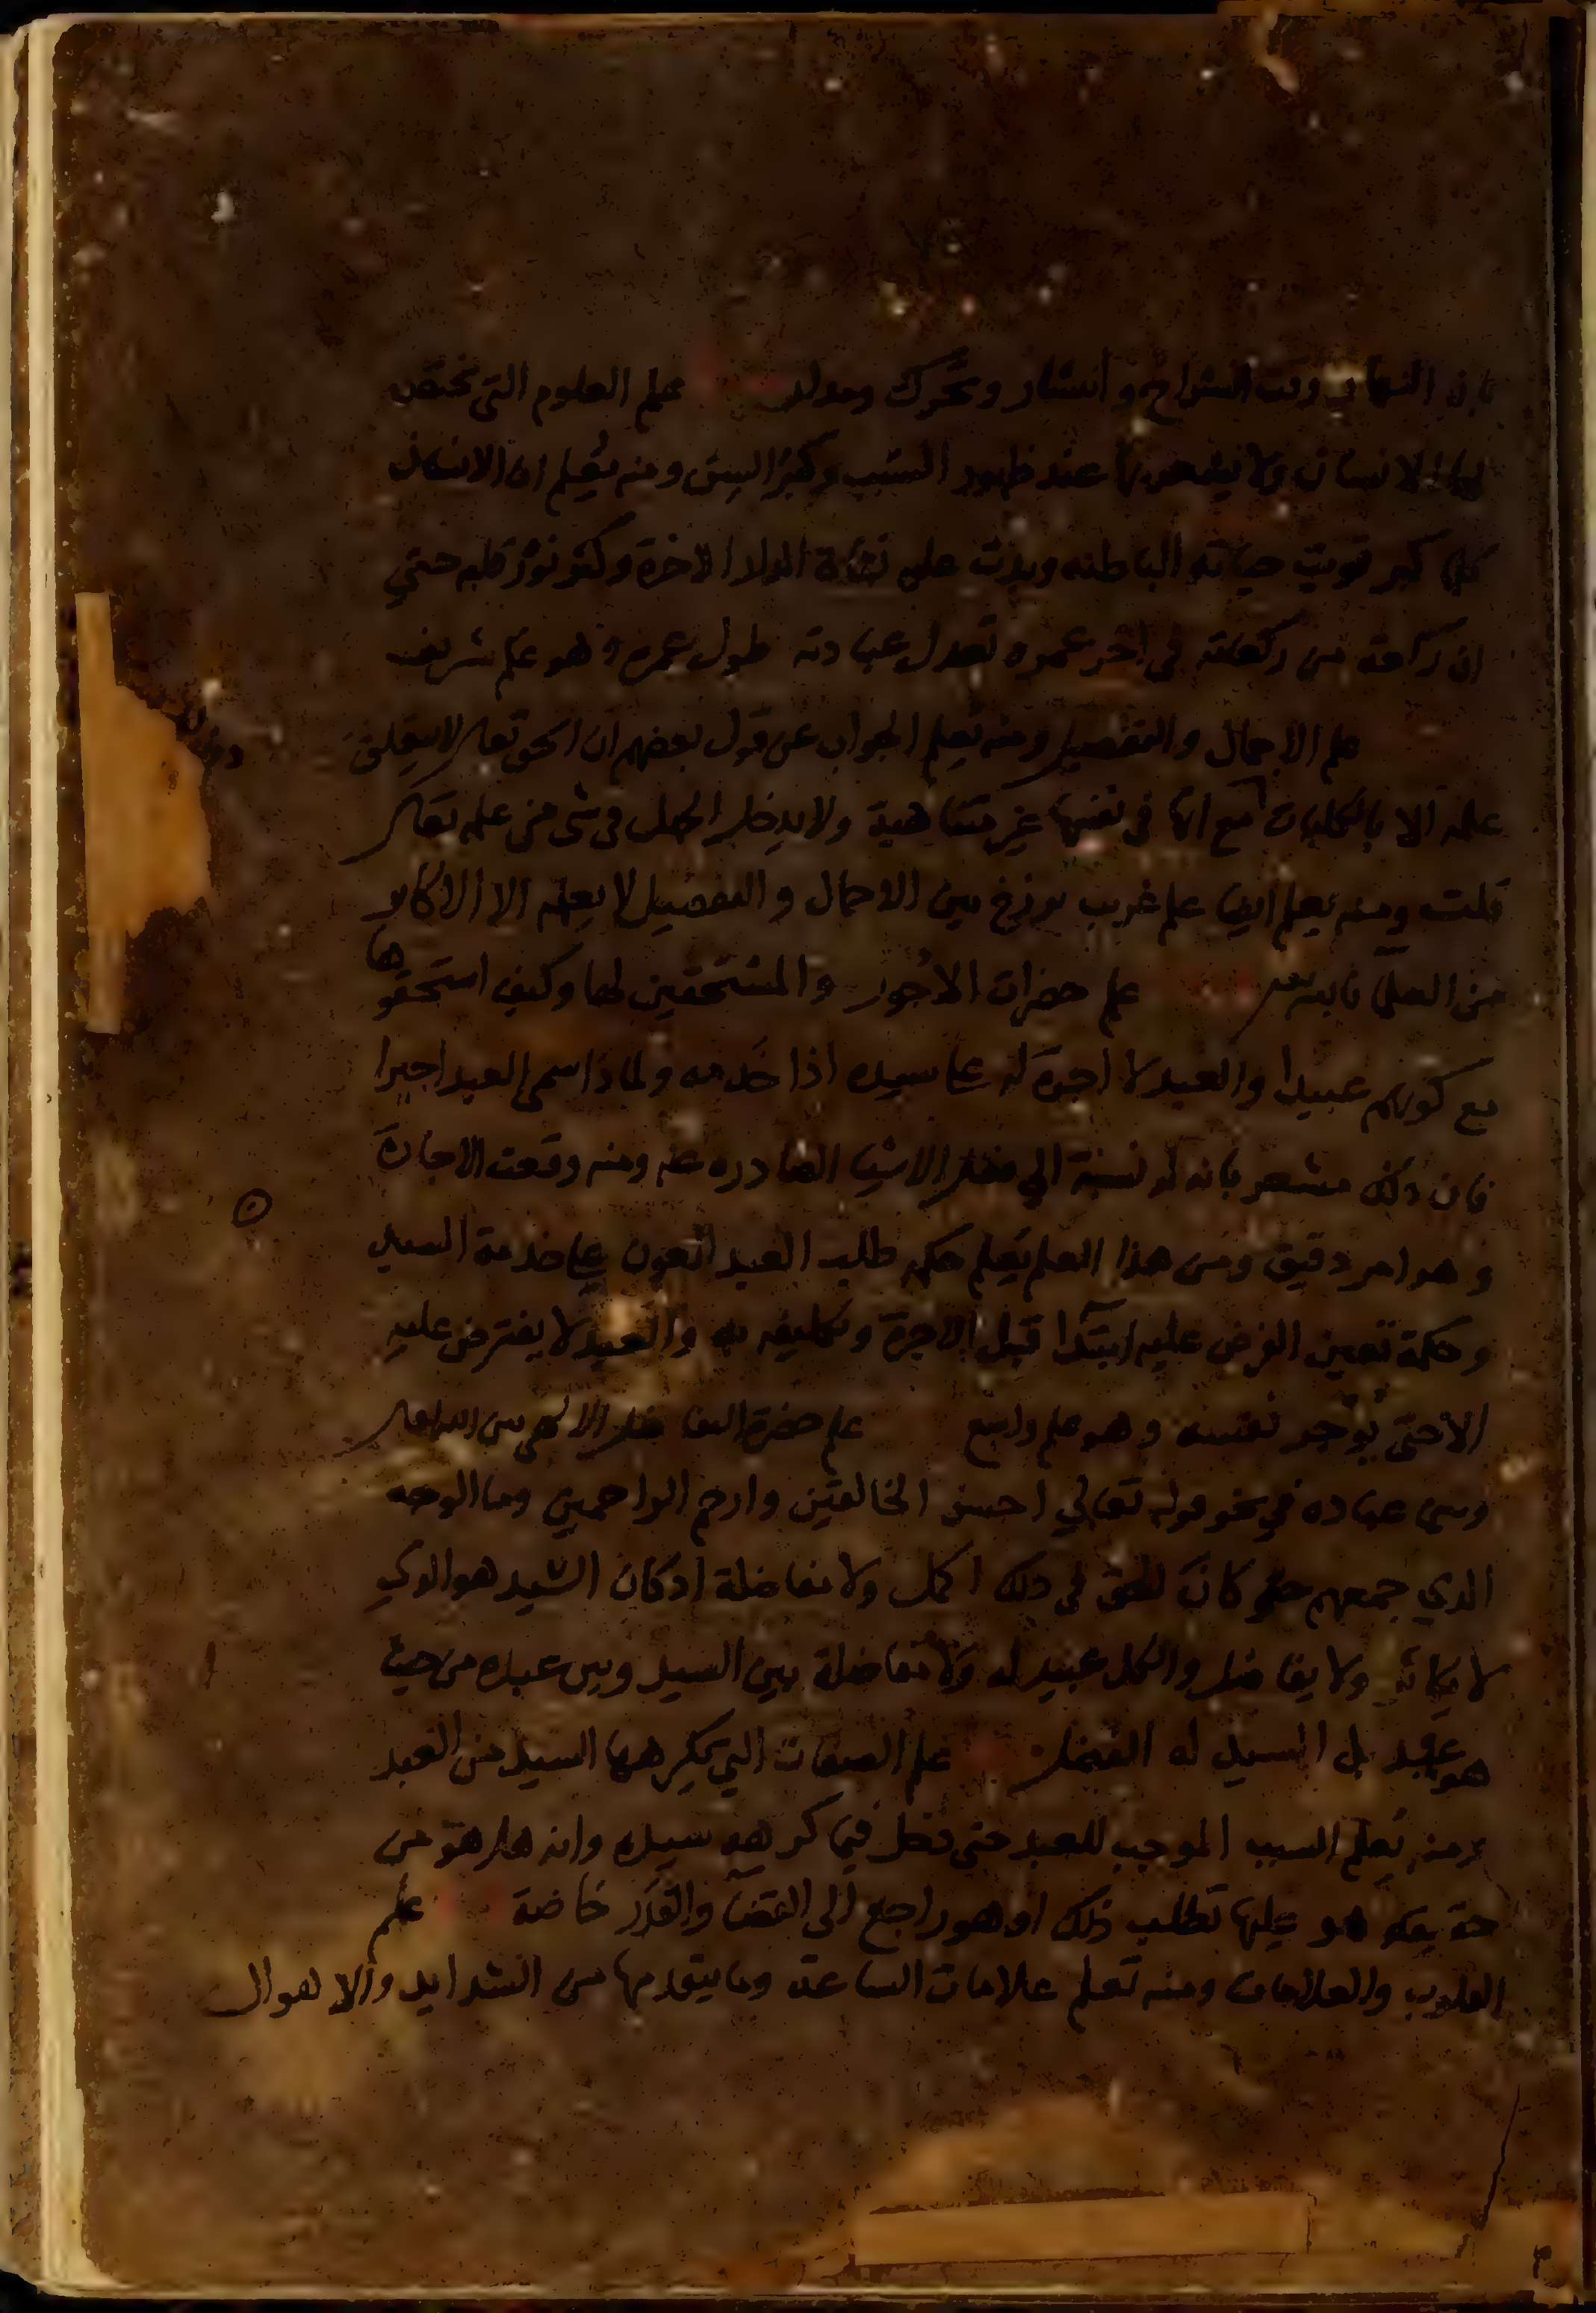 وانتشار وتحرك علم العلوم التي تختص
بها الانسان ولا يشعر بها عند ظهور الشيب وكبر السن ومنه يعلم ان الانسان
كلما كبر قويت حياته الباطنه وبدت عليه الاخرة وكثر نور قلبه حتي
ان ركعة من ركعاته في اخر عمره تعدل عبادته طول عمره وهو علم شريف
علم الاجمال والتفصيل ومنه يعلم الجواب عن قول بعضهم ان الحق تعالى لا يتعلق
علمه الا بالكليات مع انها في نفسها غير متناهية ولا يدخل الجهل في شي من علمه تعالى
قلت ومنه يعلم ايضا علم غريب برزخ بين الاجمال والتفصيل لا يعلمه الا الاكابر
من العلما بالله علم حضرات الاجور والمستحقين لها وكيف استحقوها
مع كونهم عبيدا والعبد لا اجرة له على سيده اذا خدمه ولماذا سمي العبد اجيرا
فان ذلك مشعر بانه له نسبة الي الاشيا الصادره عنه ومنه وقعت الاجارة
وهو امر دقيق ومن هذا العلم يعلم حكم طلب العبد العون على خدمة السيد
وحكمة تعيين الفرض عليه ابتدا قبل الاجرة وتكليفه به والعبد لا يفترض عليه
الا حتى يوجر نفسه وهو علم واسع علم حضرة التفاضل الالهي بين الله تعالى
وبين عباده في نحو قوله تعالي احسن الخالقين وارحم الراحمين وما الوجه
الذي جمعهم حتى كان الحق في ذلك اكمل ولا مفاضلة اذ كان السيد هو الذي
لا يكاثر ولا يفاضل والكل عبيد له ولا مفاضلة بين السيد وبين عبده من حيث
هو عبد بل السيد له الفضل علم الصفات التي يكرهها السيد من العبد
ومنه يعلم السبب الموجب للعبد حتى دخل فيما كرهه سيده وانه هل هو من
حقيقة هو عليها تطلب ذلك او هو راجع الى القضا والقدر خاصة علم
والعلامات ومنه تعلم علامات الساعة وما يتقدمها من الشدايد والاهوال